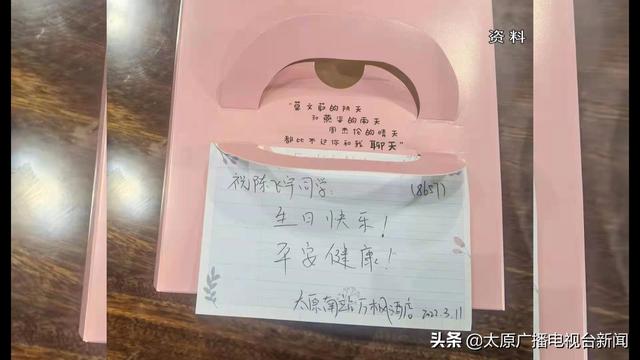 资料
“蔡文蔚的阴天
孙燕姿的雨天
周杰伦的晴天
都比不过你和我 聊天”
祝陈飞宇同学: (8657)
生日快乐!
平安健康!
太原南站万枫酒店 2022.3.11
头条 @太原广播电视台新闻